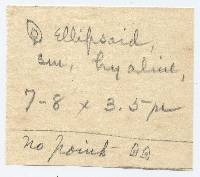 Ellipsoid,
sm, hyaline,
7-8 x 3.5 µ
no point